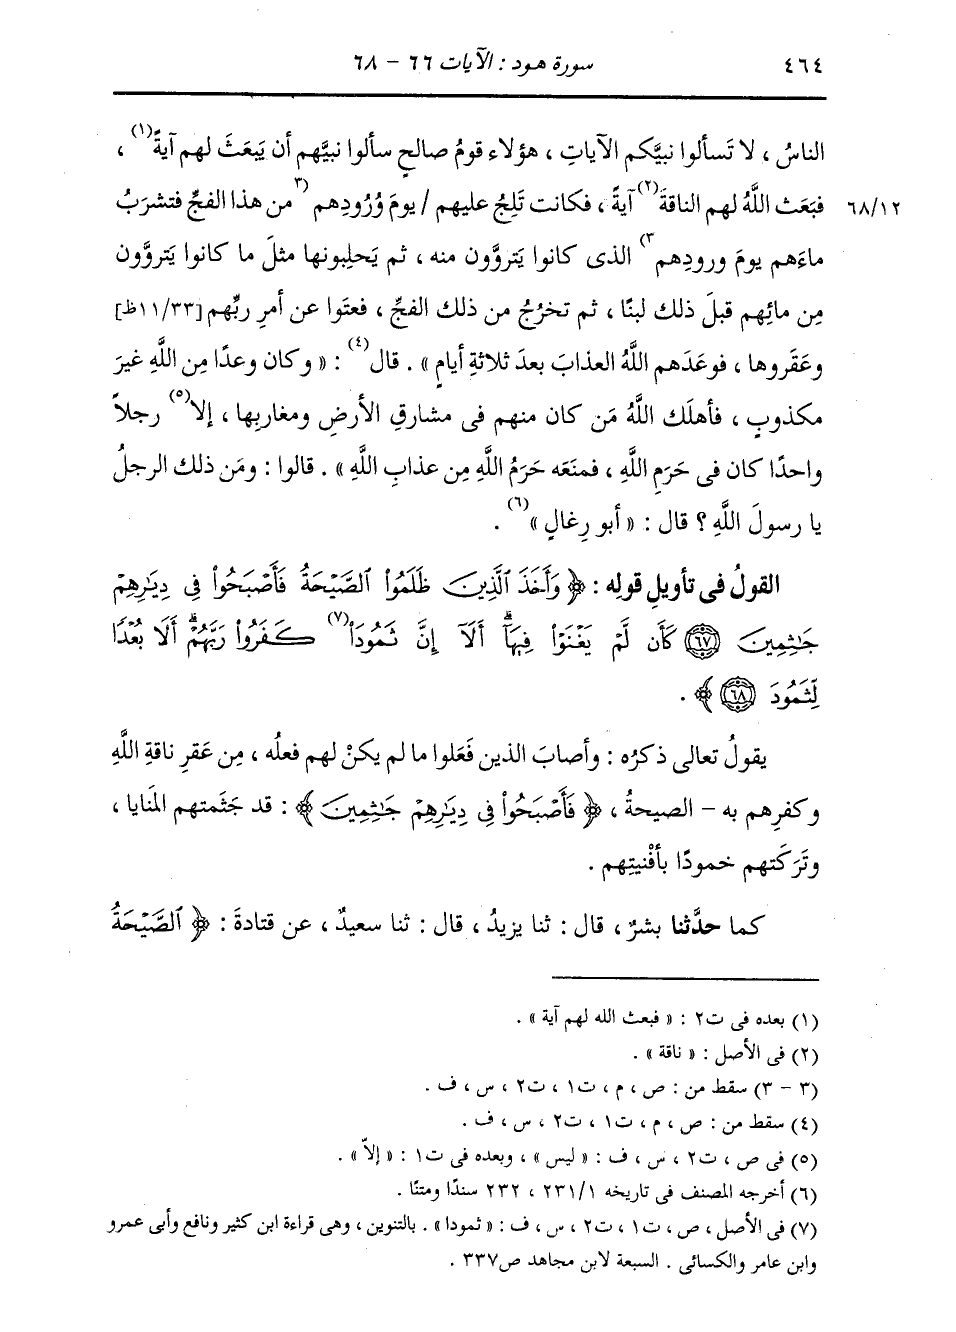 ٤٦٤ سورة هود : الآيات ٦٦ - ٦٨
الناسُ ، لا تَسألوا نبيَّكم الآياتِ ، هؤلاء قومُ صالحٍ سألوا نبيَّهم أن يَبعَثَ لهم آيةً(١) ،
٦٨/١٢ فبَعَث اللَّهُ لهم الناقةَ(٢) آيةً ، فكانت تَلِجُ عليهم / يومَ وُرُودِهم (٣من هذا الفجِّ فتشرَبُ
ماءَهم يومَ ورودِهم٣) الذى كانوا يَتروَّون منه ، ثم يَحلِبونها مثلَ ما كانوا يَتروَّون
مِن مائِهم قبلَ ذلك لبنًا ، ثم تخرُجُ من ذلك الفجِّ ، فعتَوا عن أمرِ ربِّهم [١١/٣٣ظ]
وعقَروها ، فوعَدَهم اللَّهُ العذابَ بعدَ ثلاثةِ أيامٍ » . قال(٤) : « وكان وعدًا مِن اللَّهِ غيرَ
مكذوبٍ ، فأهلَك اللَّهُ مَن كان منهم فى مشارقِ الأرضِ ومغاربِها ، إلا(٥) رجلاً
واحدًا كان فى حَرَمِ اللَّهِ ، فمنَعَه حَرَمُ اللَّهِ مِن عذابِ اللَّهِ » . قالوا : ومَن ذلك الرجلُ
يا رسولَ اللَّهِ ؟ قال : « أبو رِغالٍ »(٦) .
القولُ فى تأويلِ قولِه : ﴿ وَأَخَذَ ٱلَّذِينَ ظَلَمُوا۟ ٱلصَّيْحَةُ فَأَصْبَحُوا۟ فِى دِيَٰرِهِمْ
جَٰثِمِينَ ٦٧ كَأَن لَّمْ يَغْنَوْا۟ فِيهَآ ۗ أَلَآ إِنَّ ثَمُودَا۟(٧) كَفَرُوا۟ رَبَّهُمْ ۗ أَلَا بُعْدًا
لِّثَمُودَ ٦٨ ﴾ .
يقولُ تعالى ذكرُه : وأصابَ الذين فَعَلوا ما لم يكنْ لهم فعلُه ، مِن عَقرِ ناقةِ اللَّهِ
وكفرِهم به - الصيحةُ ، ﴿ فَأَصْبَحُوا۟ فِى دِيَٰرِهِمْ جَٰثِمِينَ ﴾ : قد جَثَمتهم المنايا ،
وتَرَكَتهم خمودًا بأفْنيتِهم .
كما حدَّثنا بشرٌ ، قال : ثنا يزيدُ ، قال : ثنا سعيدٌ ، عن قتادةَ : ﴿ ٱلصَّيْحَةُ
(١) بعده فى ت٢ : « فبعث الله لهم آية » .
(٢) فى الأصل : « ناقة » .
(٣ - ٣) سقط من : ص ، م ، ت١ ، ت٢ ، س ، ف .
(٤) سقط من : ص ، م ، ت١ ، ت٢ ، س ، ف .
(٥) فى ص ، ت٢ ، س ، ف : « ليس » ، وبعده فى ت١ : « إلاّ » .
(٦) أخرجه المصنف فى تاريخه ٢٣١/١ ، ٢٣٢ سندًا ومتنًا .
(٧) فى الأصل ، ص ، ت١ ، ت٢ ، س ، ف : « ثمودا » . بالتنوين ، وهى قراءة ابن كثير ونافع وأبى عمرو
وابن عامر والكسائى . السبعة لابن مجاهد ص٣٣٧ .